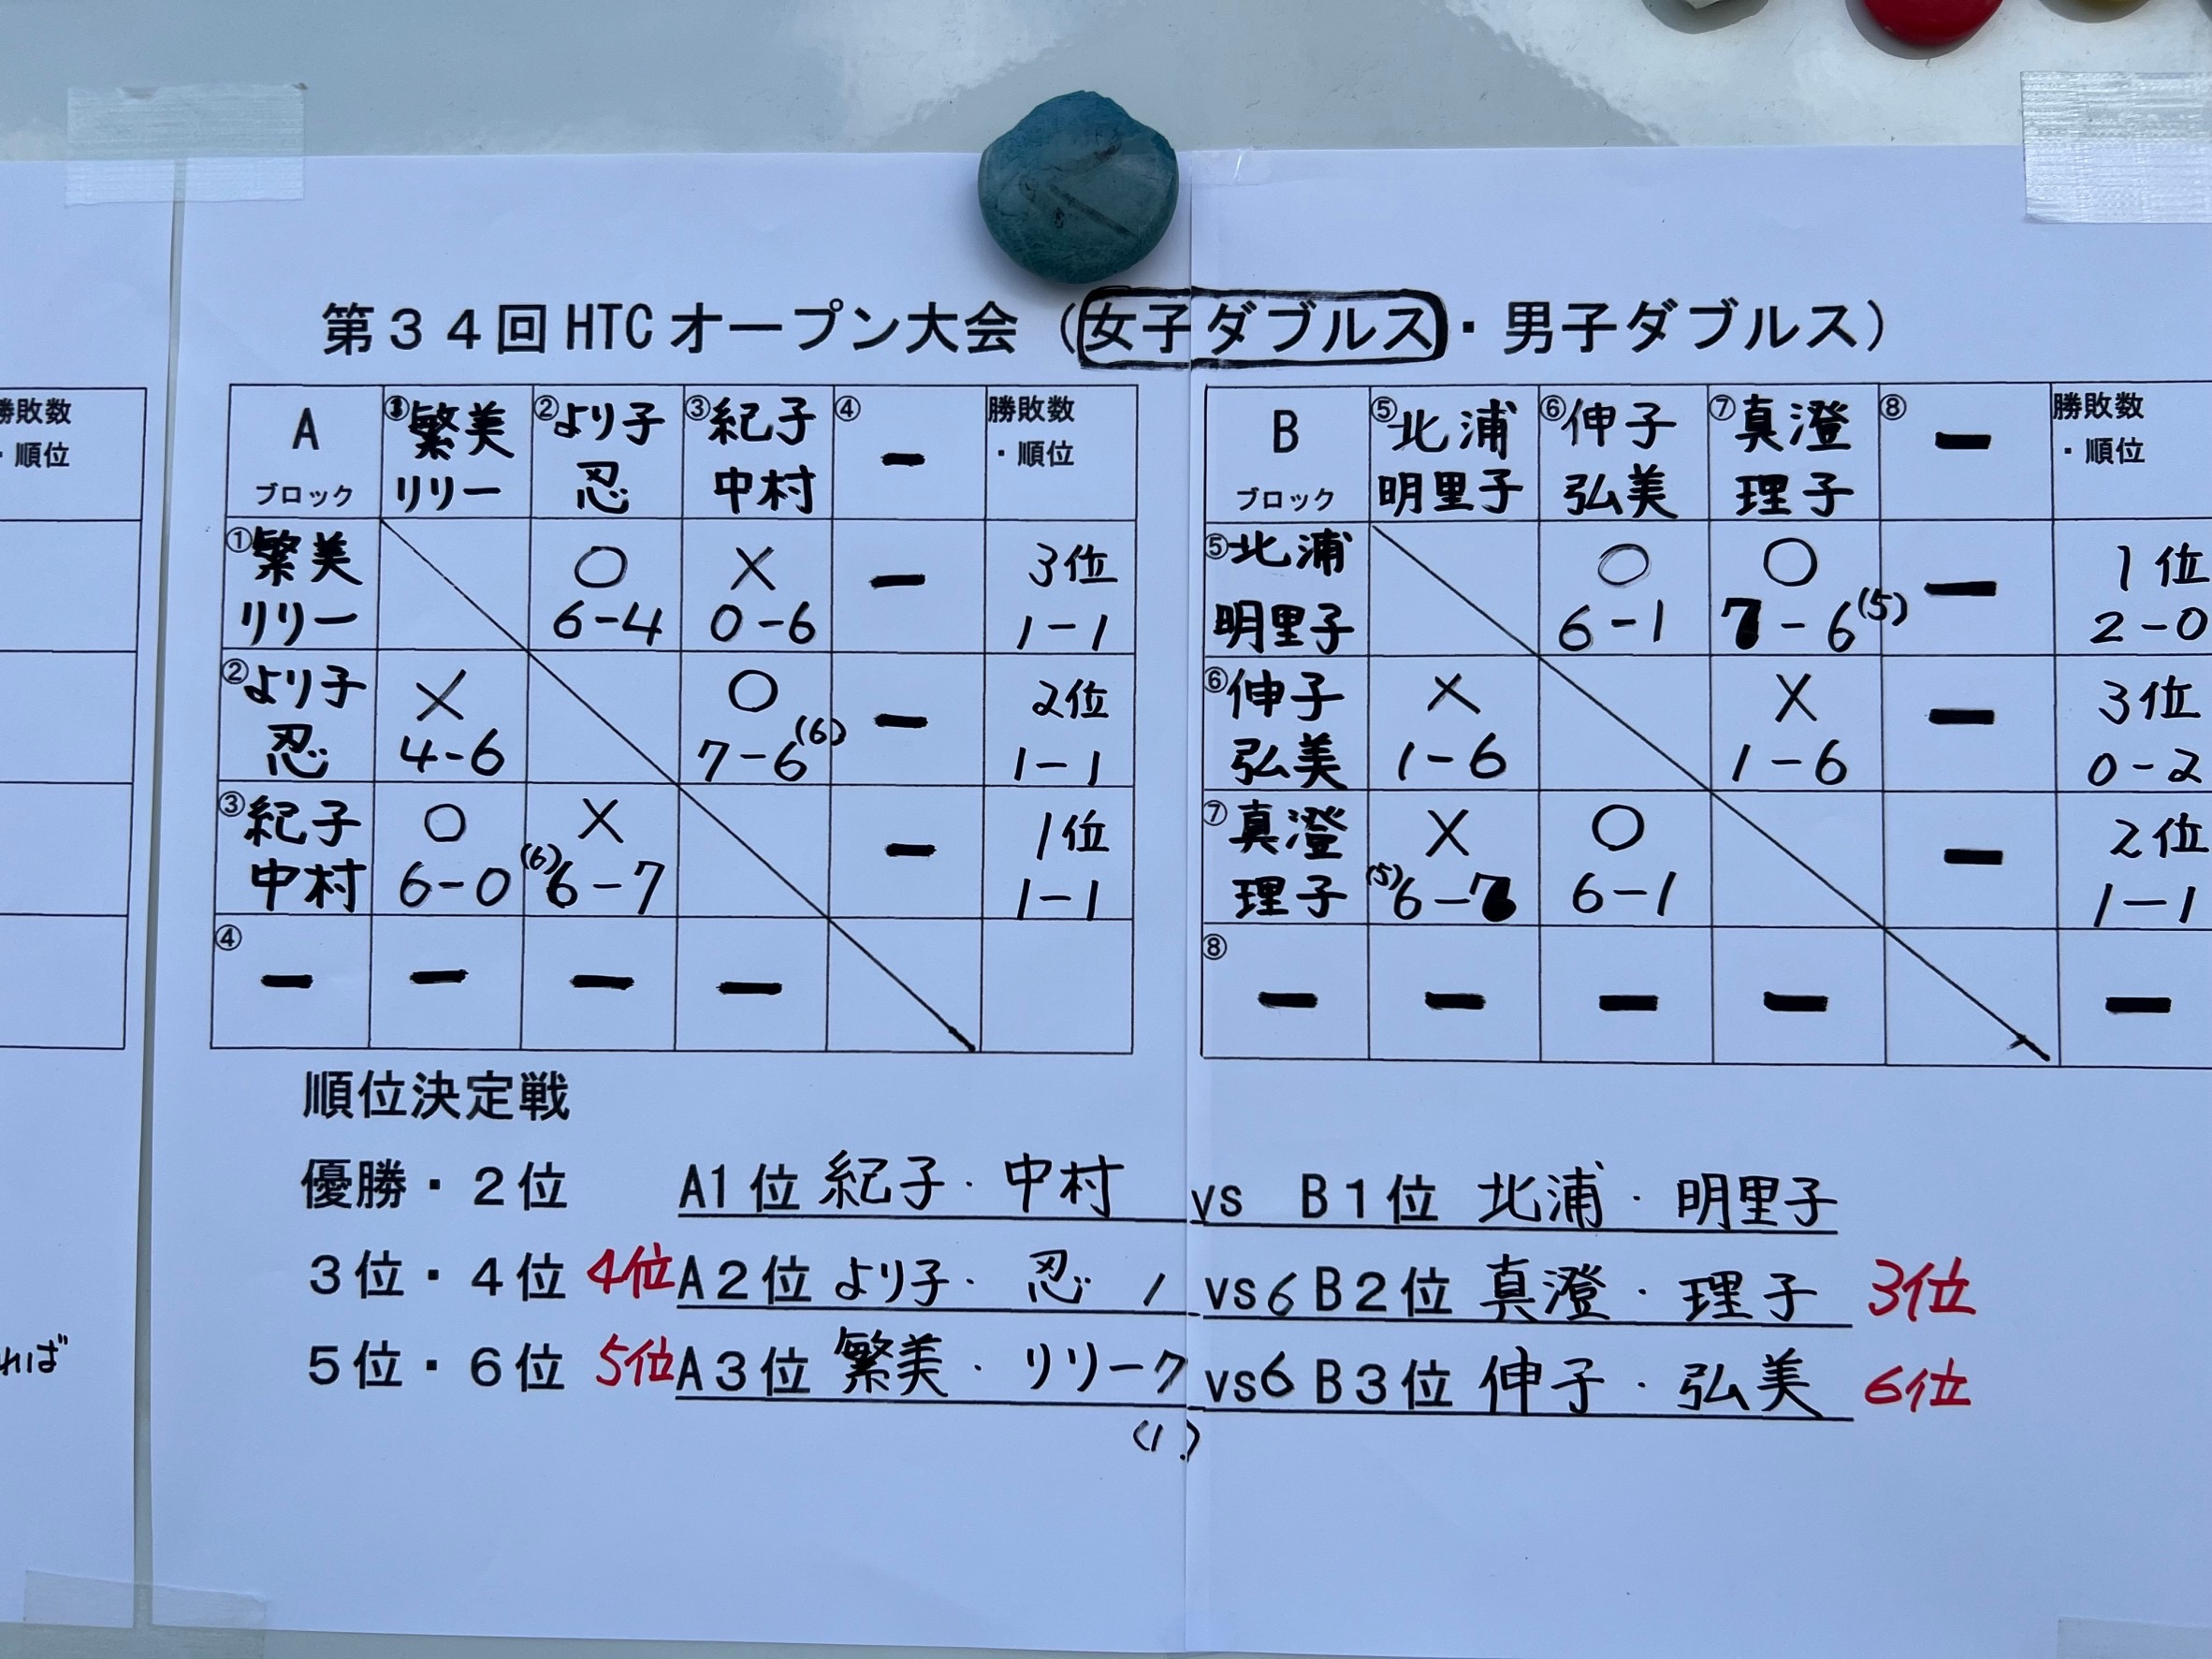 勝敗数
・順位
れば
第３４回 HTC オープン大会（女子ダブルス・男子ダブルス）
A
ブロック
①繁美
リリー
②より子
忍
③紀子
中村
④
ー
勝敗数
・順位
①繁美
リリー
○
6-4
×
0-6
ー
3位
1-1
②より子
忍
×
4-6
○
7-6(6)
ー
2位
1-1
③紀子
中村
○
6-0
×
(6)6-7
ー
1位
1-1
④
ー ー ー ー
B
ブロック
⑤北浦
明里子
⑥伸子
弘美
⑦真澄
理子
⑧
ー
勝敗数
・順位
⑤北浦
明里子
○
6-1
○
7-6(5)
ー
1位
2-0
⑥伸子
弘美
×
1-6
×
1-6
ー
3位
0-2
⑦真澄
理子
×
(5)6-7
○
6-1
ー
2位
1-1
⑧
ー ー ー ー ー
順位決定戦
優勝・２位 A1位 紀子・中村 vs B1位 北浦・明里子
３位・４位 4位 A２位 より子・忍 1 vs 6 B２位 真澄・理子 3位
５位・６位 5位 A３位 繁美・リリー 7 vs 6 B３位 伸子・弘美 6位
(1)